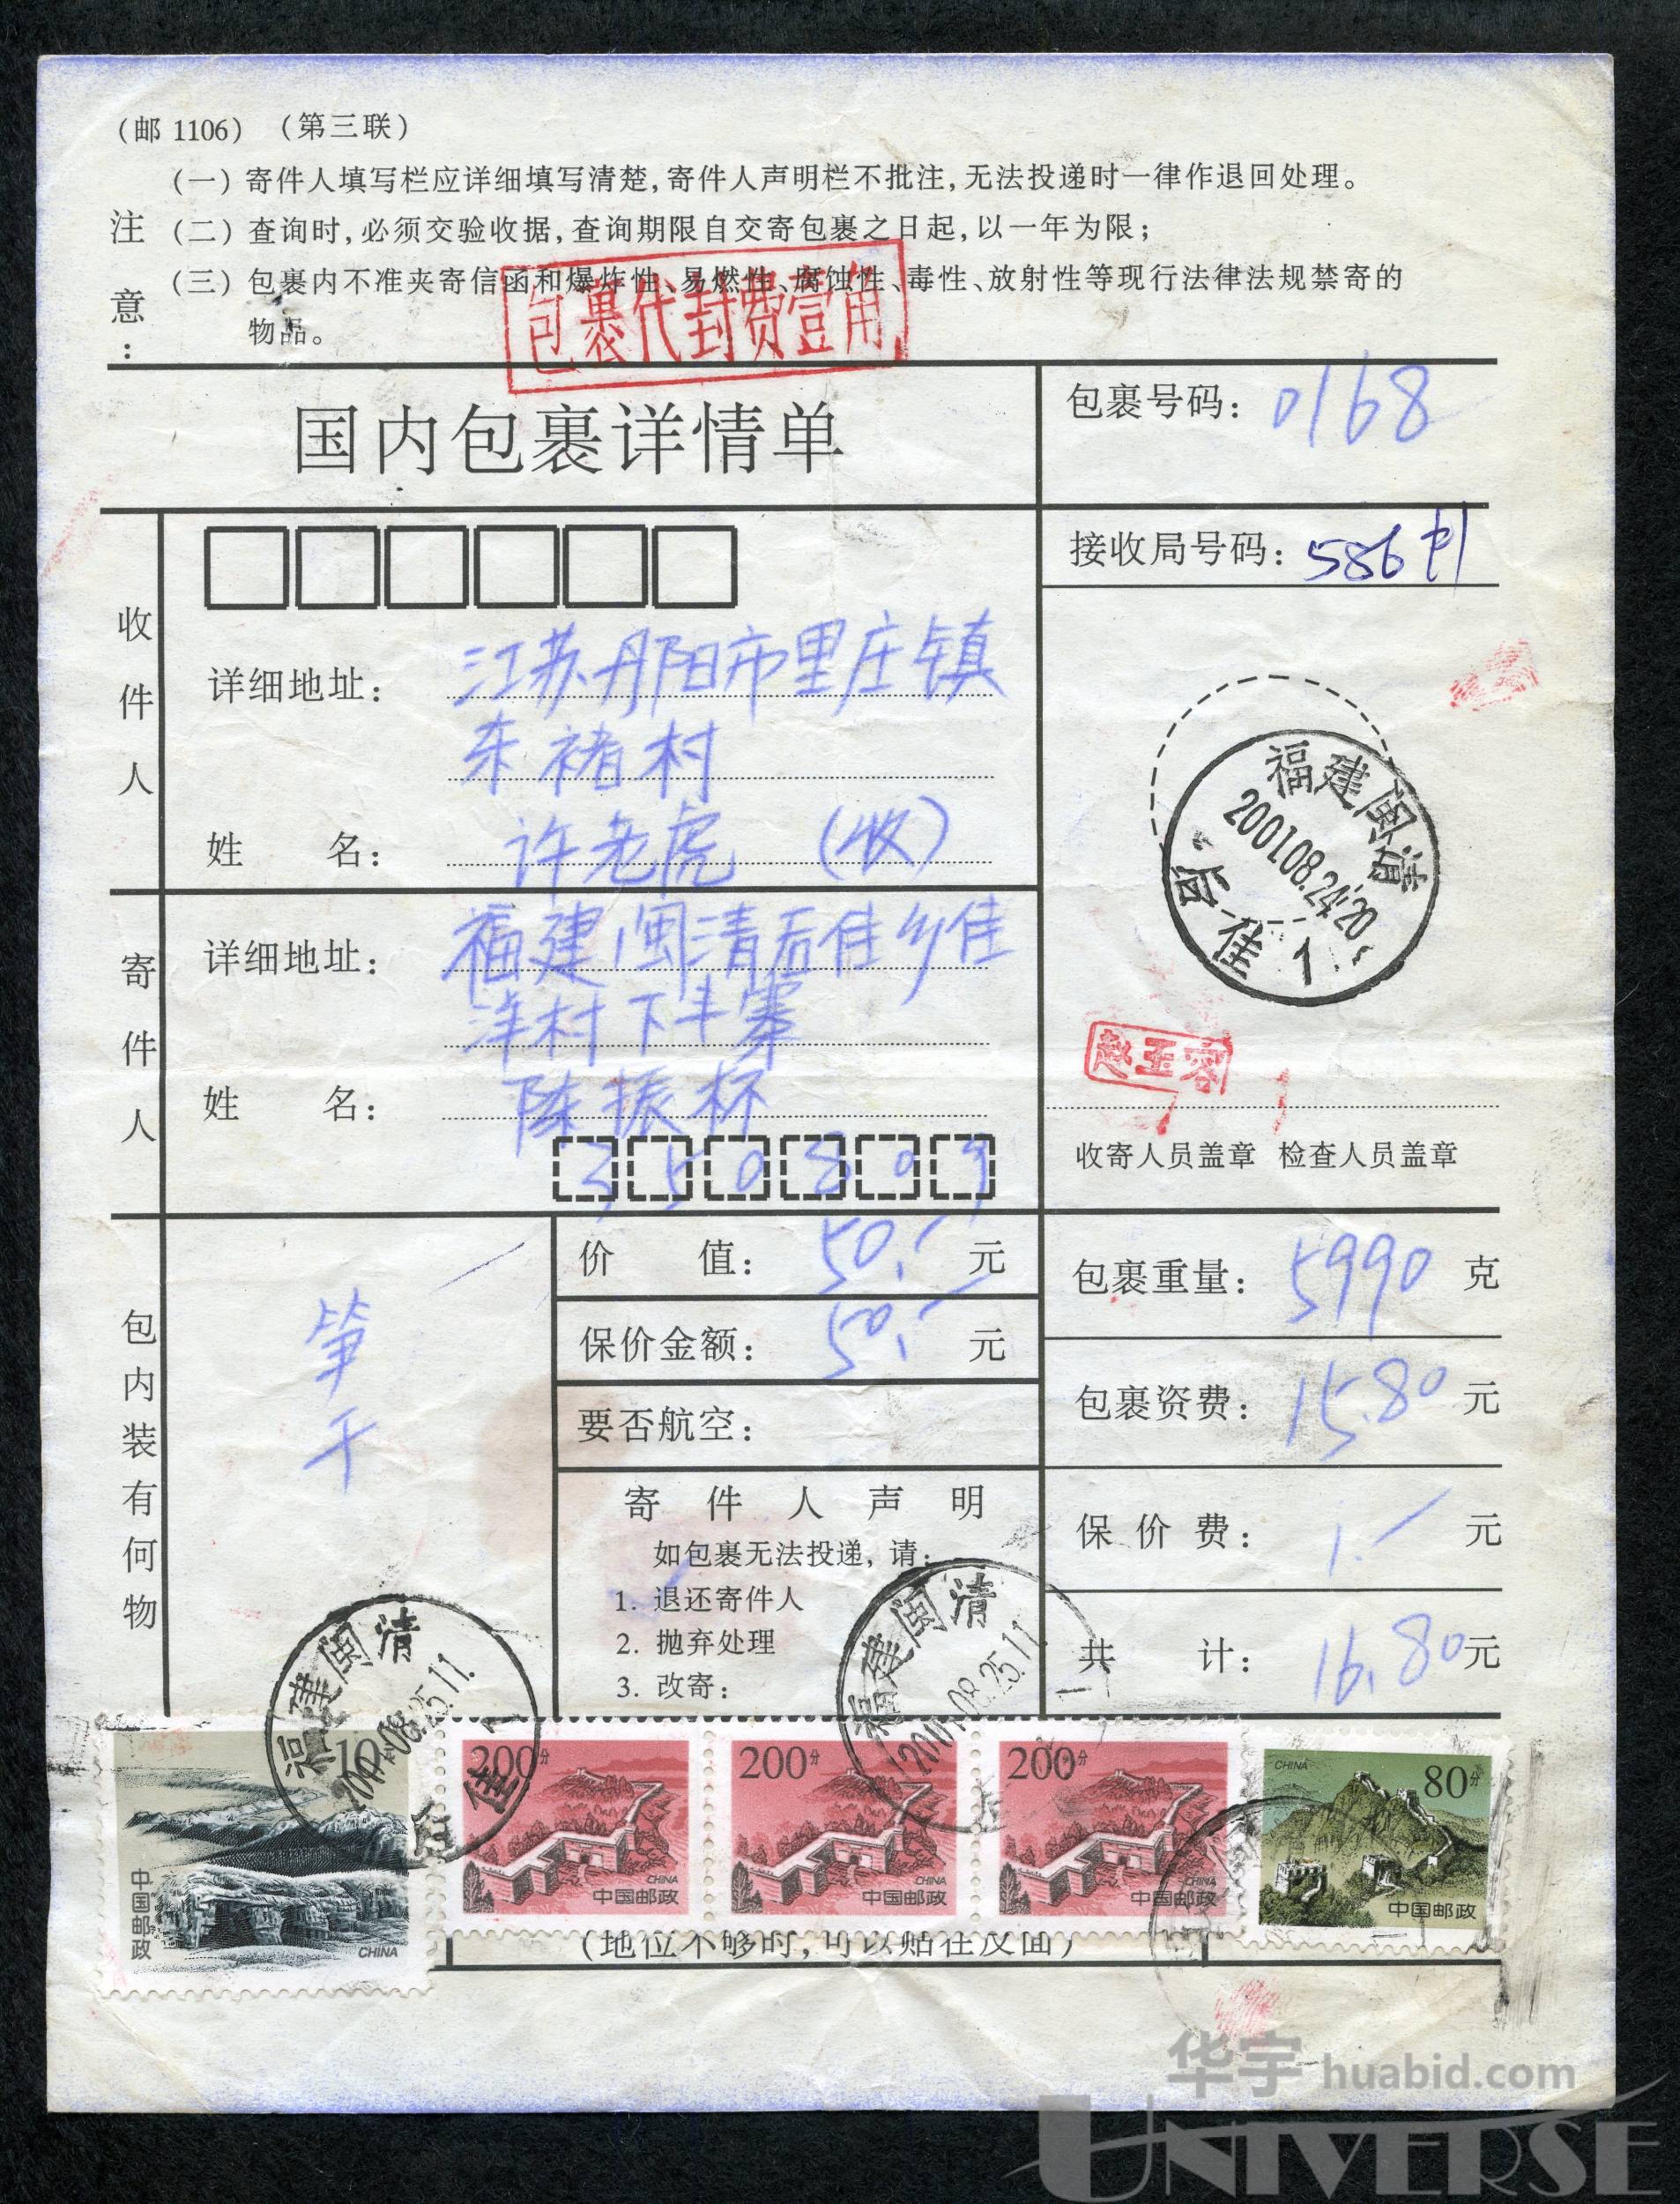 (邮 1106) (第三联)
注意:
(一) 寄件人填写栏应详细填写清楚,寄件人声明栏不批注,无法投递时一律作退回处理。
(二) 查询时,必须交验收据,查询期限自交寄包裹之日起,以一年为限;
(三) 包裹内不准夹寄信函和爆炸性、易燃性、腐蚀性、毒性、放射性等现行法律法规禁寄的
物品。
包裹代封费壹角
国内包裹详情单
包裹号码: 0168
接收局号码: 586
收件人
详细地址: 江苏丹阳市里庄镇
东褚村
姓 名: 许老虎 (收)
福建闽清
2001.08.24.20
后佳 1
寄件人
详细地址: 福建闽清后佳乡佳
洋村下丰寨
姓 名: 陈振杯
350809
赵玉容
收寄人员盖章 检查人员盖章
包内装有何物
笋干
价 值: 50.- 元
保价金额: 50.- 元
要否航空:
寄件人声明
如包裹无法投递, 请:
1. 退还寄件人
2. 抛弃处理
3. 改寄:
包裹重量: 5990 克
包裹资费: 15.80 元
保价费: 1.- 元
共 计: 16.80 元
福建闽清
2001.08.25.11.
福建闽清
2001.08.25.11
中国邮政
CHINA
200分
CHINA
中国邮政
200分
CHINA
中国邮政
200分
CHINA
中国邮政
CHINA
80分
中国邮政
(地位不够时,可以贴在反面)
华宇 huabid.com
UNIVERSE